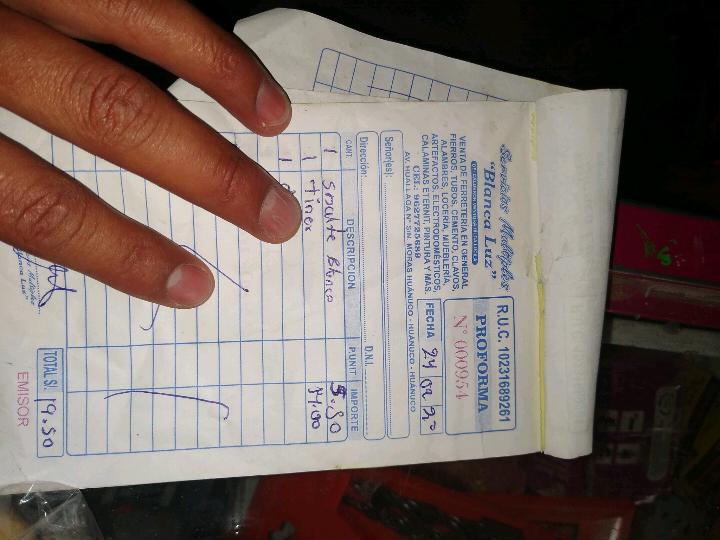 Servicios Multiples
"Blanca Luz"
VENTA DE FERRETERIA EN GENERAL
FIERROS, TUBOS, CEMENTO, CLAVOS,
ALAMBRES, LOCERIA, MUEBLERIA,
ARTEFACTOS, ELECTRODOMÉSTICOS,
CALAMINAS ETERNIT, PINTURA Y MAS.
CEL: 962772S689
AV. HUALLAGA Nº S/N. MORAS HUÁNUCO - HUÁNUCO - HUÁNUCO
R.U.C. 10231689261
PROFORMA
Nº 000954
FECHA 24 02 20
Señor(es):
Dirección: D.N.I.
CANT. DESCRIPCION P.UNIT. IMPORTE
1 Smalte Blanco 5.50
1 tiner 14.00
1
TOTAL S/. 19.50
EMISOR